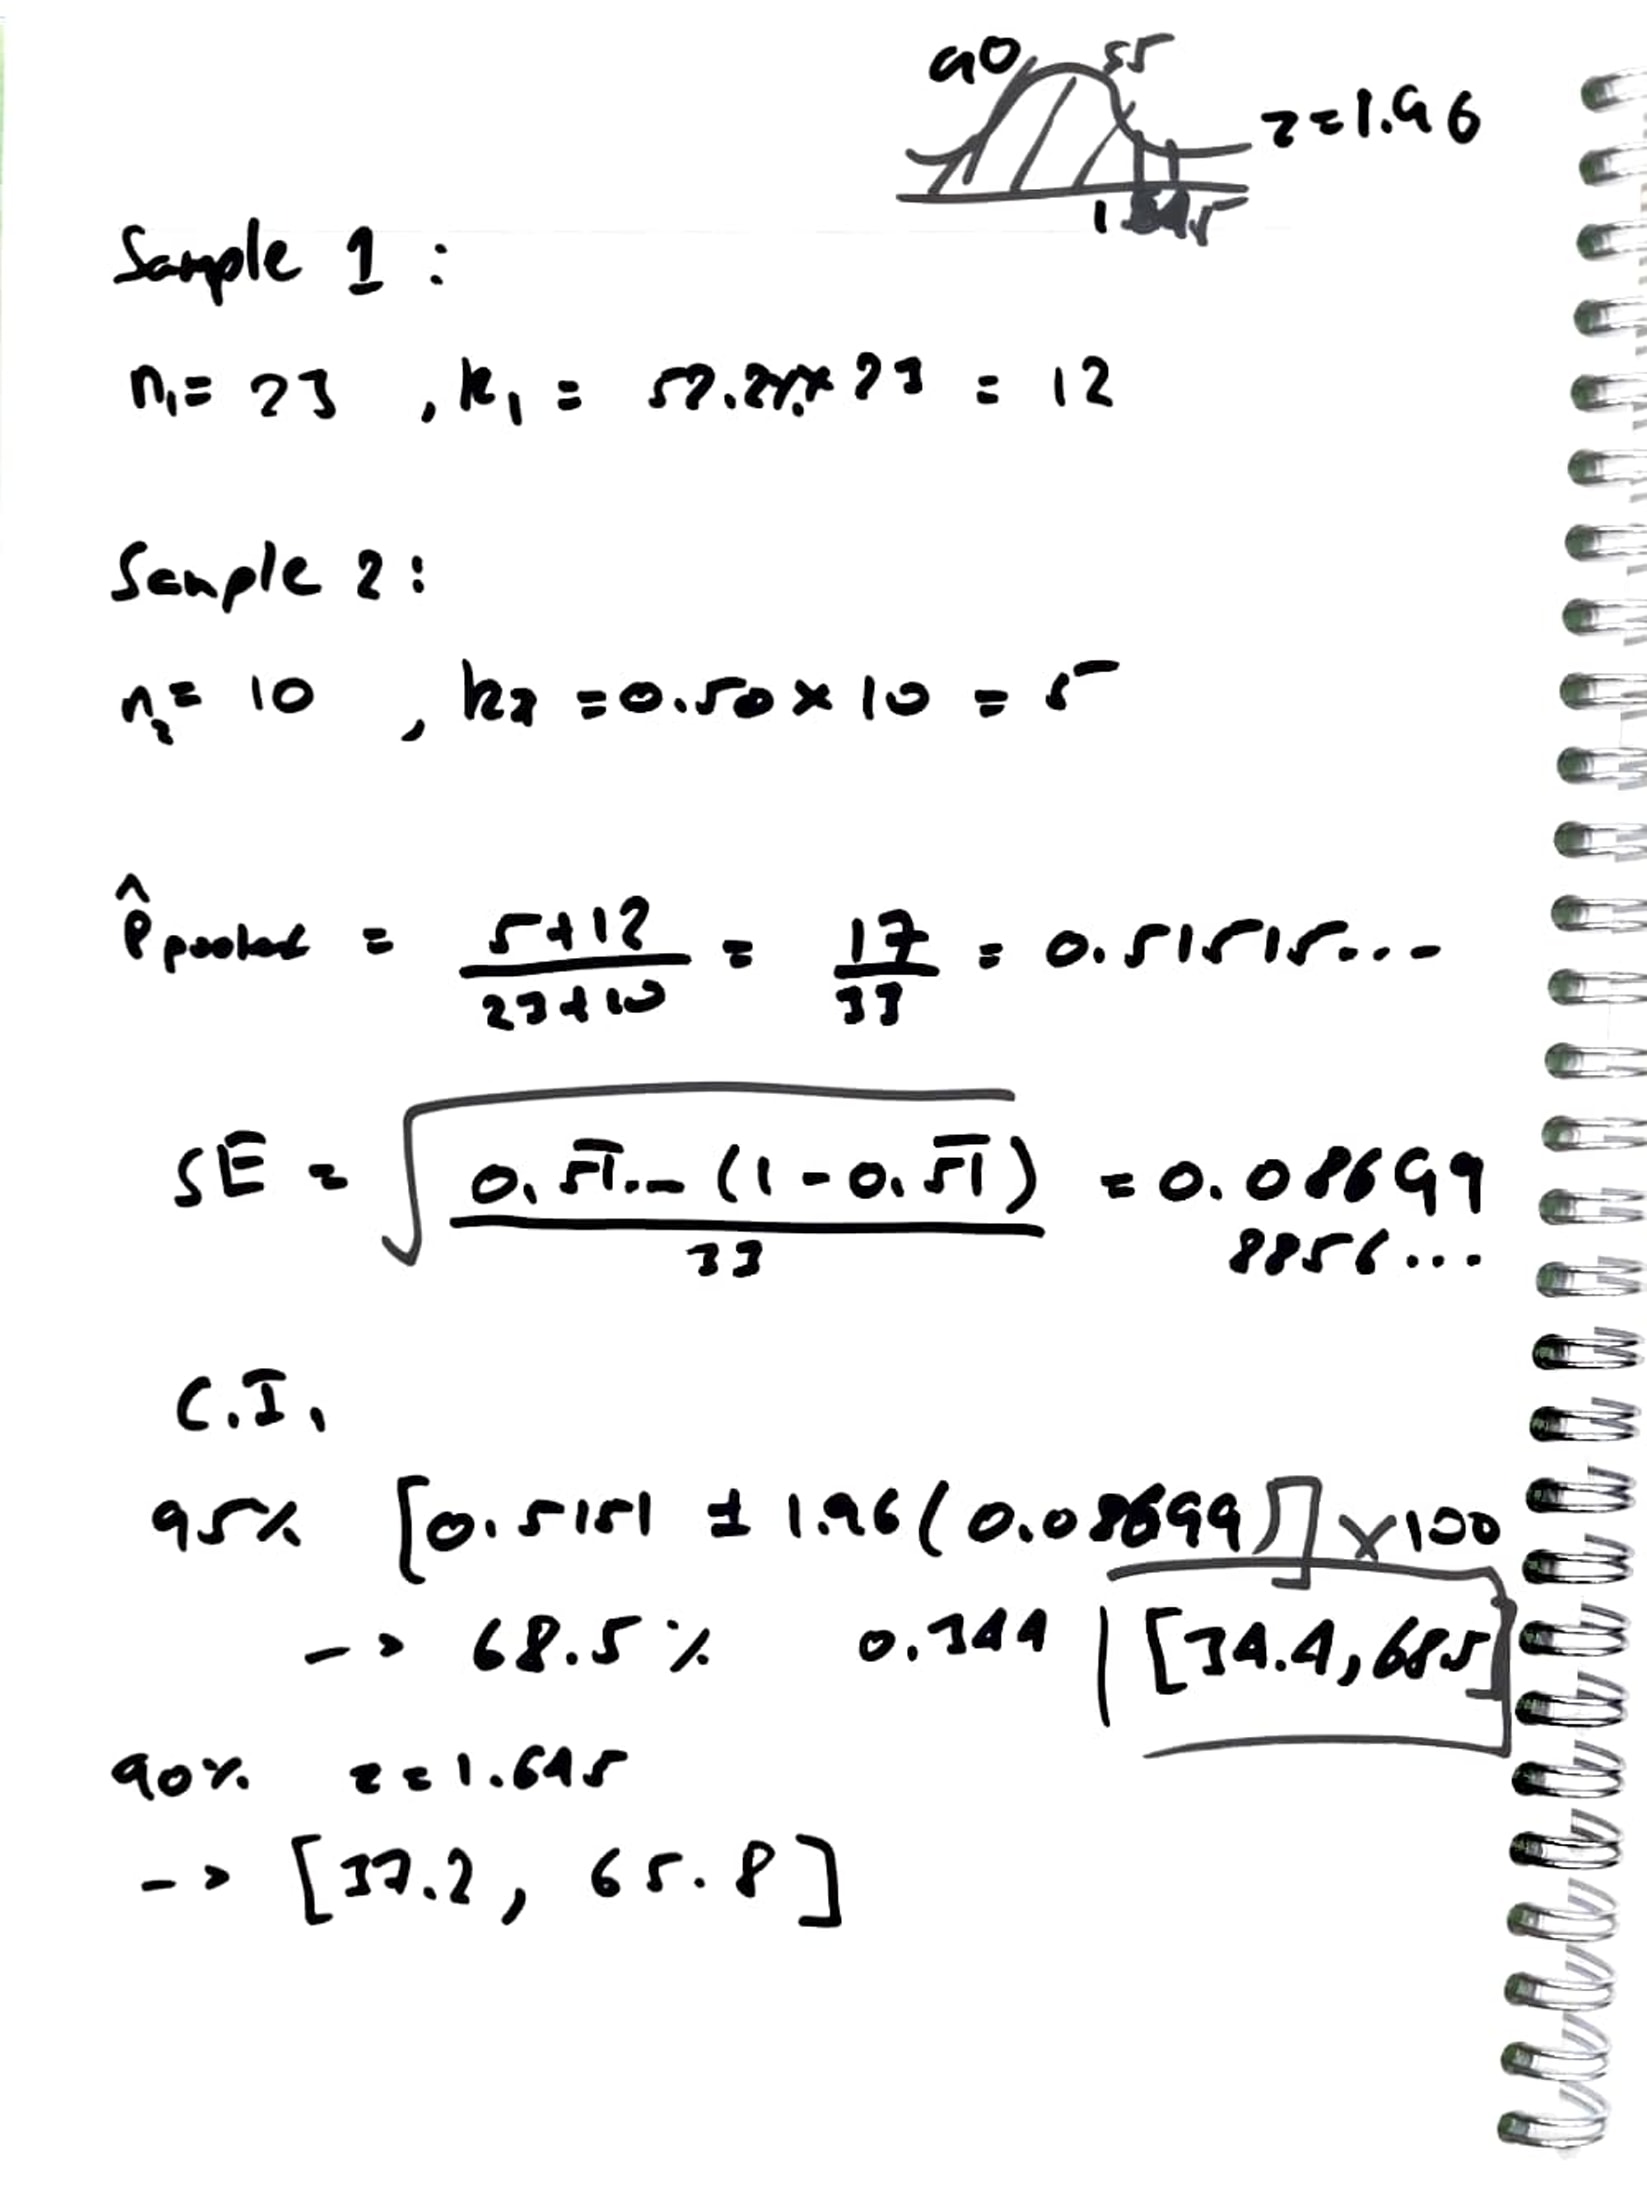 90 95
z=1.96
1.645
Sample 1 :
n₁= 23 , k₁ = 52.2%× 23 = 12
Sample 2 :
n₂= 10 , k₂ =0.50×10 = 5
p̂ pooled = 5+12 / 23+10 = 17 / 33 = 0.51515...
SE = √ 0.51... (1-0.51) / 33 = 0.08699
8856...
C.I.
95% [0.5151 ± 1.96(0.08699)] ×100
-> 68.5% 0.344 | [34.4,68.5]
90% z=1.645
-> [37.2, 65.8]